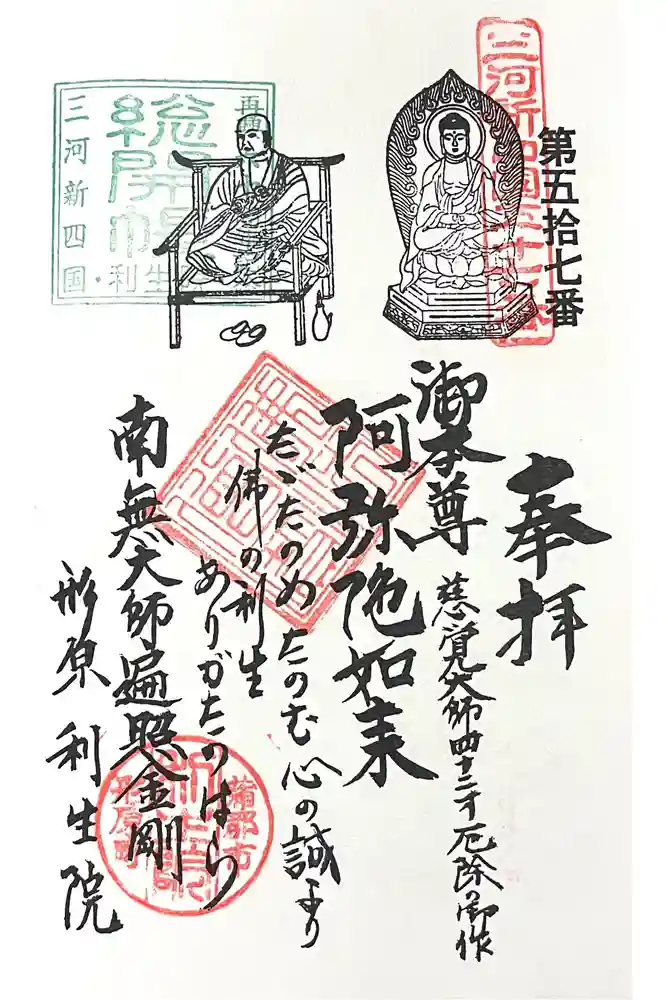 第五拾七番
三河新四国五十七番
再興
総開帳
三河新四国・利生
奉拝
慈覚大師四十二才厄除の御作
御本尊
阿弥陀如来
たゞたのめたのむ心の誠より
佛の利生
ありがたのはら
南無大師遍照金剛
形原利生院
蒲郡市
形原町